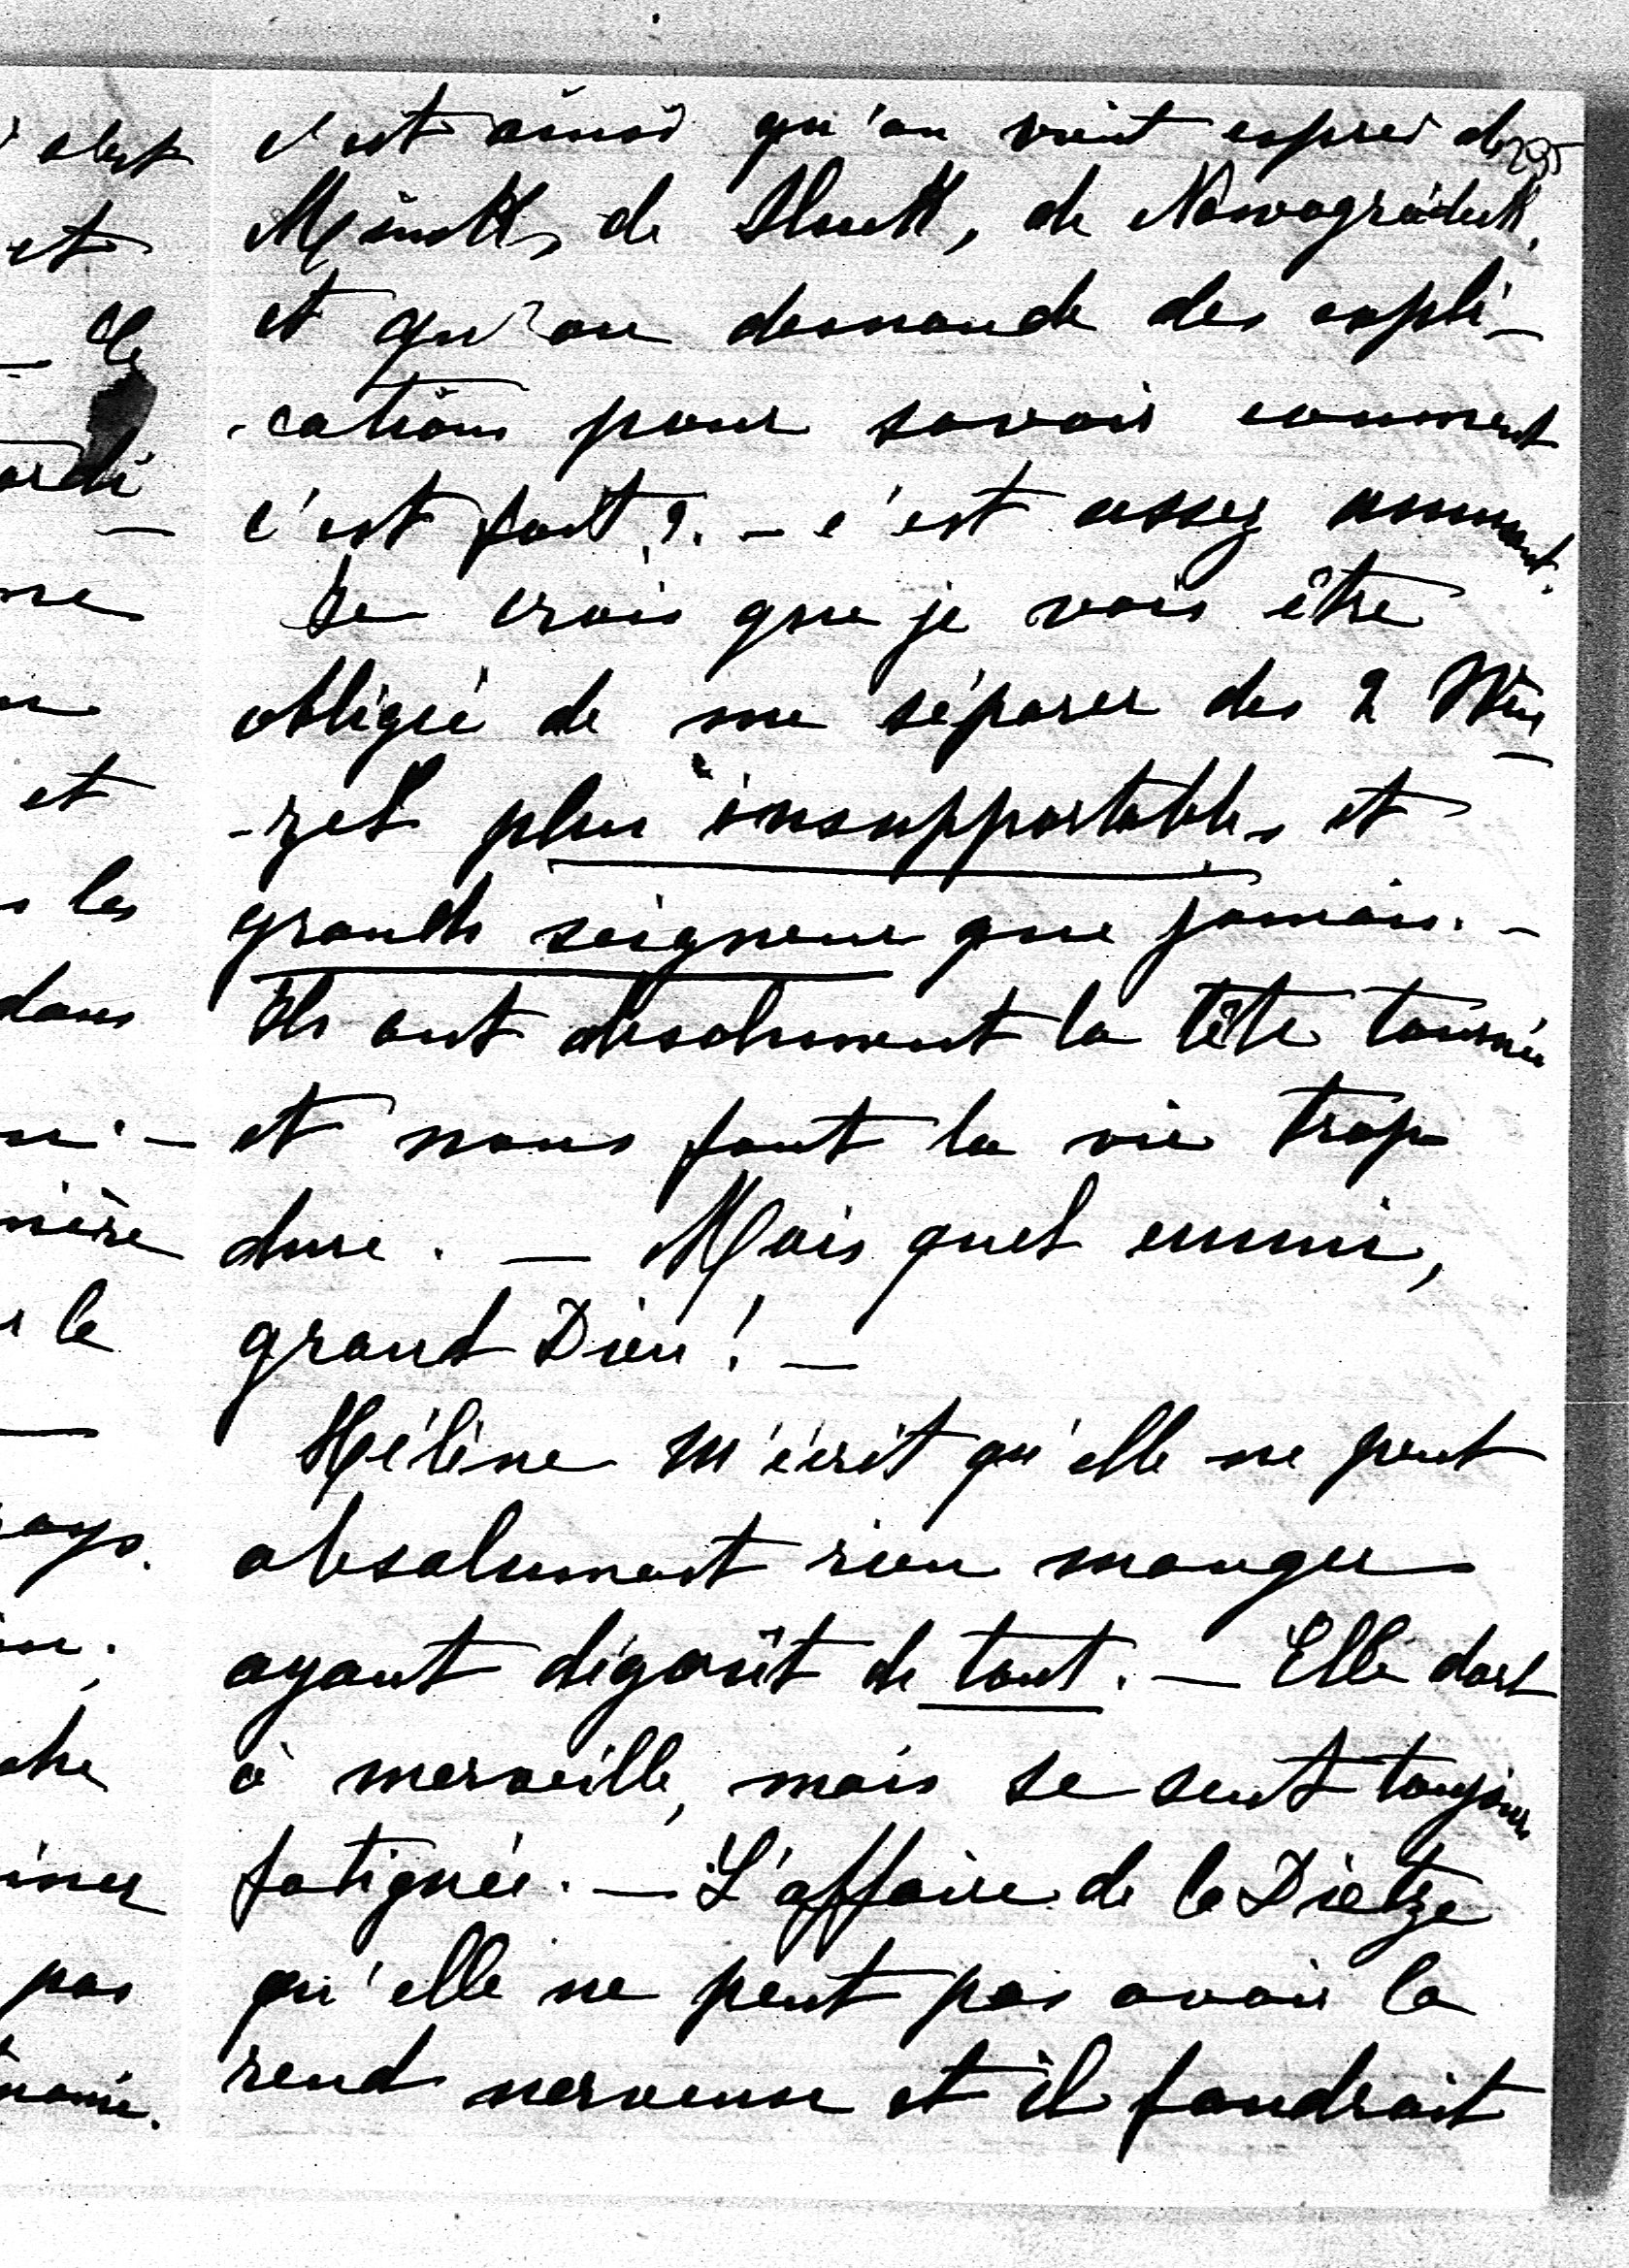 295
c'est ainsi qu'on vient exprès de
Minsk, de Sluck, de Nowogródek,
et qu'on demande des expli-
-cations pour savoir comment
c'est fait?. - c'est assez amusant.
Je crois que je vais être
obligé de me séparer des 2 Wen-
-zel plus insupportables et
grands seigneurs que jamais. -
Ils ont absolument la tête tournée
et nous font la vie trop
dure. - Mais quel ennui,
grand Dieu! -
Hélène m'écrit qu'elle ne peut
absolument rien manger
ayant dégoût de tout. - Elle dort
à merveille, mais se sent toujours
fatiguée. - L'affaire de la Dietze
qu'elle ne peut pas avoir la
rend nerveuse et il faudrait
et
et
les
dans
nière
le
pas